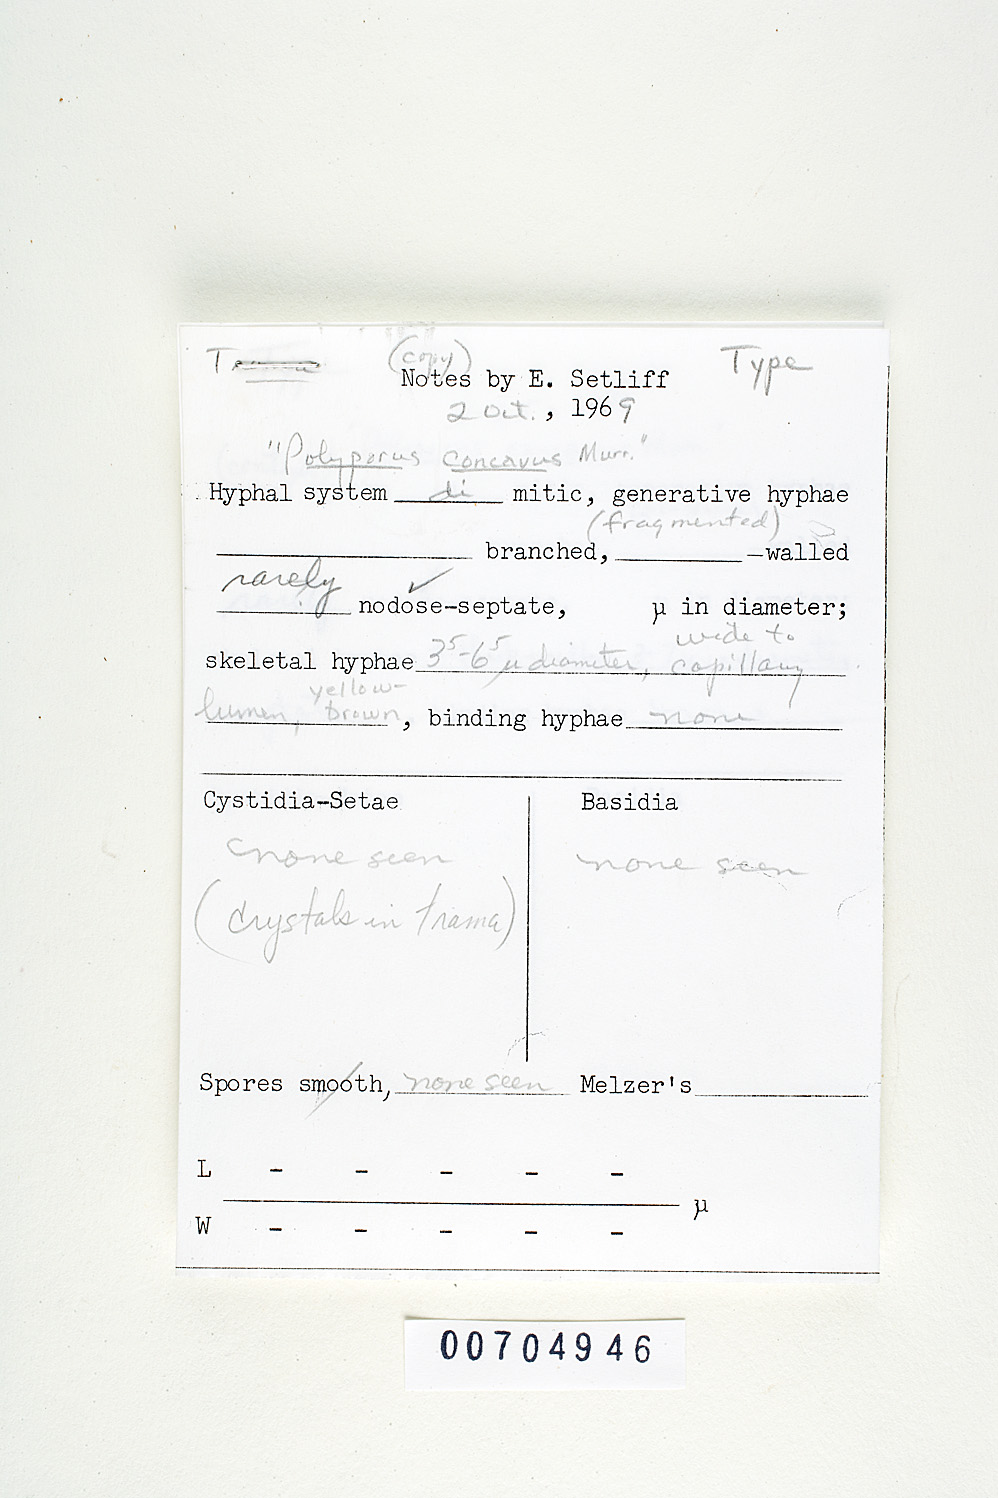 (copy) Type
Notes by E. Setliff
2 Oct., 1969
"Polyporus concavus Murr."
Hyphal system di mitic, generative hyphae
(fragmented)
branched, -walled
rarely ✓
nodose-septate, µ in diameter;
wide to
skeletal hyphae 3⁵-6⁵ µ diameter, capillary
yellow-
lumen, brown, binding hyphae none
Cystidia-Setae Basidia
none seen none seen
(crystals in trama)
Spores smooth, none seen Melzer's
L - - - - -
µ
W - - - - -
00704946